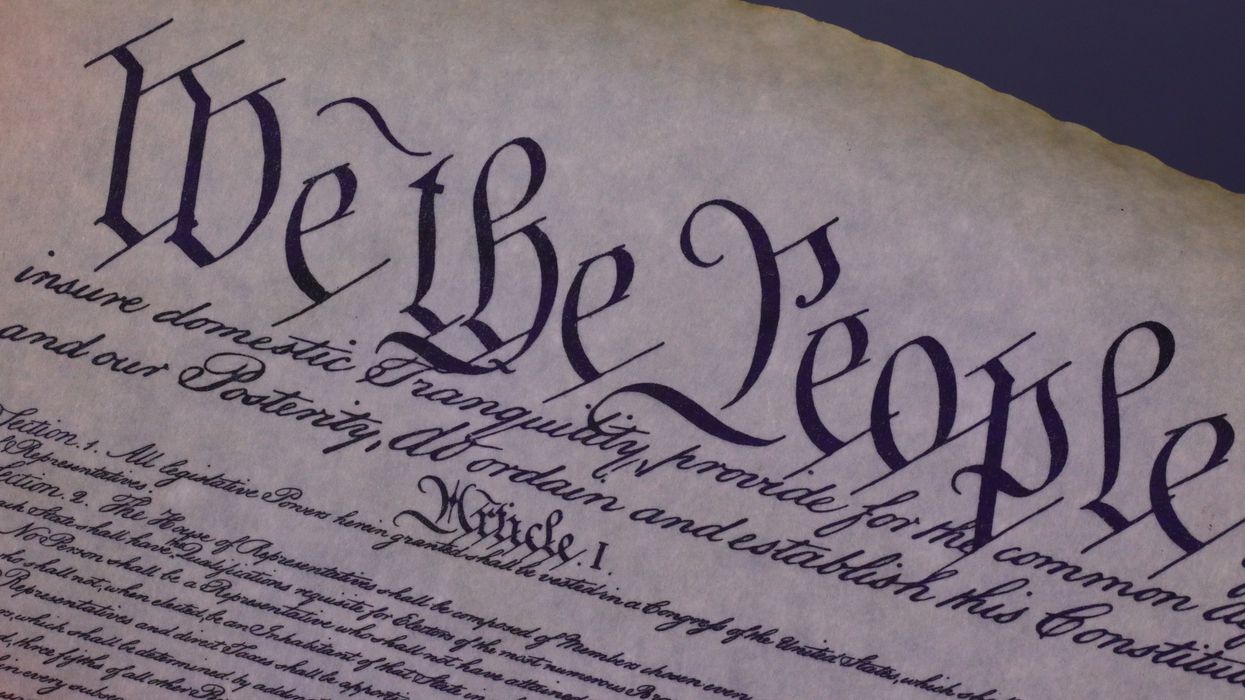 We the People
insure domestic Tranquility, provide for the common
and our Posterity, do ordain and establish this Constitu
Article. I
Section. 1. All legislative Powers herein granted shall be vested in a Congress of the United States, which
Representatives.
Section. 2. The House of Representatives shall be composed of Members chosen every
State shall have the Qualifications requisite for Electors of the most numerous
No Person shall be a Representative who shall not have attained
shall not, when elected, be an Inhabitant of that State in
Representatives and direct Taxes shall be apport
which shall be determined by add
three fifths of all other